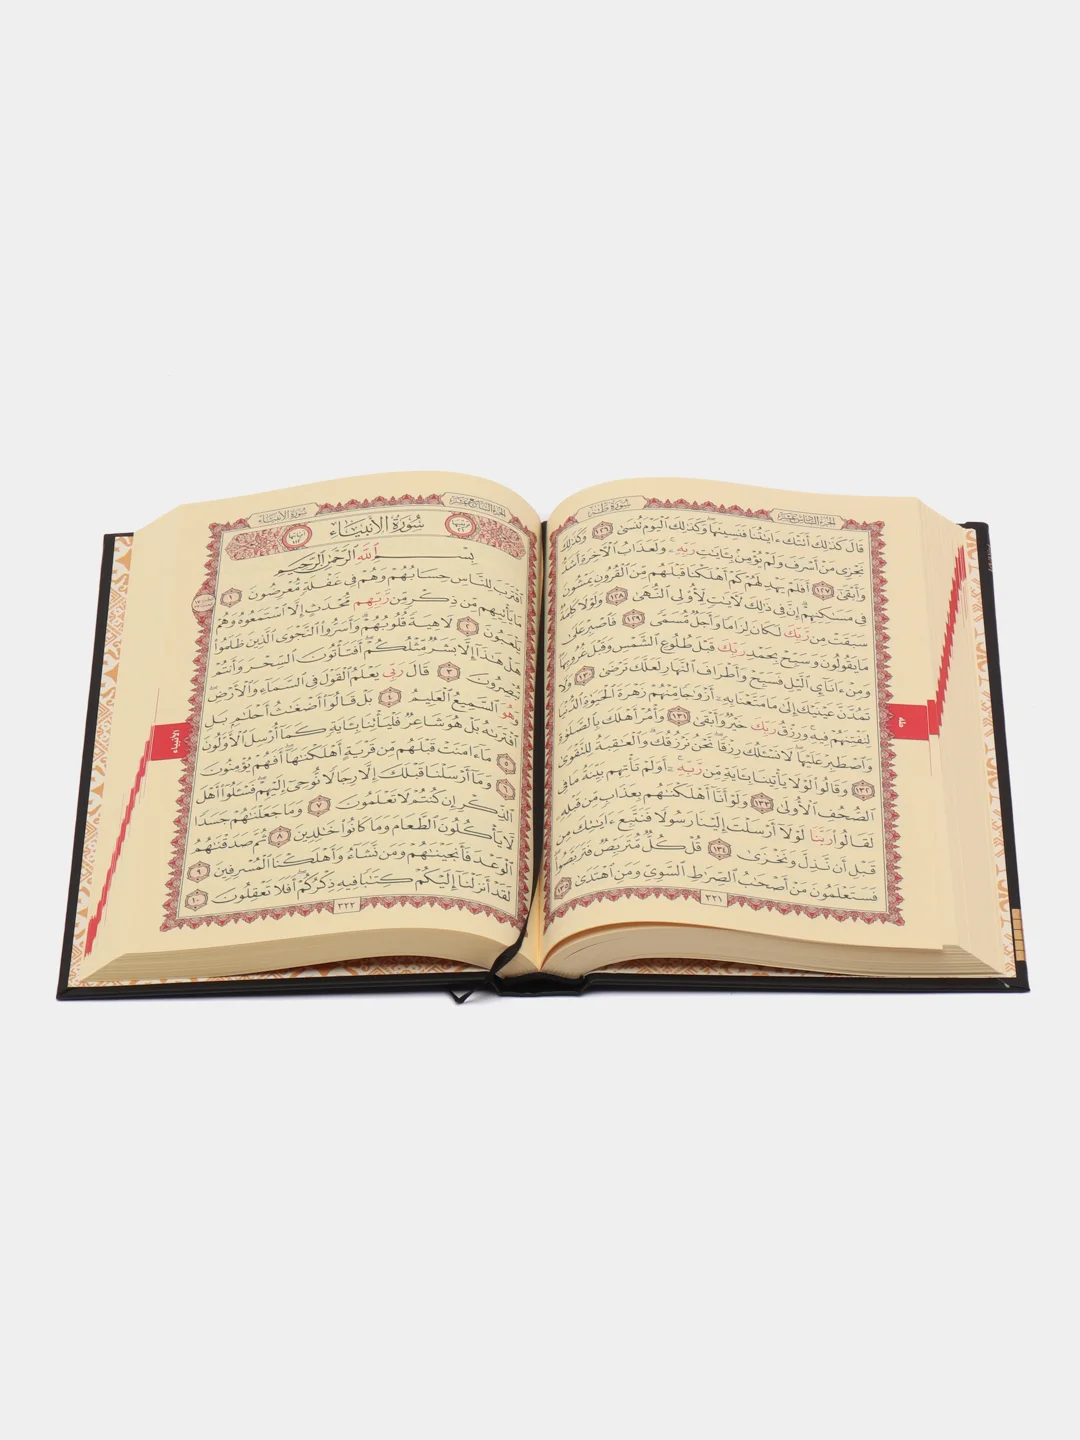 سُورَةُ طه
الجُزْءُ السَّادِسَ عَشَرَ
قَالَ كَذَٰلِكَ أَتَتْكَ ءَايَٰتُنَا فَنَسِيتَهَا ۖ وَكَذَٰلِكَ ٱلْيَوْمَ تُنسَىٰ ١٢٦ وَكَذَٰلِكَ
نَجْزِى مَنْ أَسْرَفَ وَلَمْ يُؤْمِنۢ بِـَٔايَٰتِ رَبِّهِۦ ۚ وَلَعَذَابُ ٱلْءَاخِرَةِ أَشَدُّ
وَأَبْقَىٰٓ ١٢٧ أَفَلَمْ يَهْدِ لَهُمْ كَمْ أَهْلَكْنَا قَبْلَهُم مِّنَ ٱلْقُرُونِ يَمْشُونَ
فِى مَسَٰكِنِهِمْ ۗ إِنَّ فِى ذَٰلِكَ لَءَايَٰتٍ لِّأُو۟لِى ٱلنُّهَىٰ ١٢٨ وَلَوْلَا كَلِمَةٌ
سَبَقَتْ مِن رَّبِّكَ لَكَانَ لِزَامًا وَأَجَلٌ مُّسَمًّى ١٢٩ فَٱصْبِرْ عَلَىٰ
مَا يَقُولُونَ وَسَبِّحْ بِحَمْدِ رَبِّكَ قَبْلَ طُلُوعِ ٱلشَّمْسِ وَقَبْلَ غُرُوبِهَا ۖ
وَمِنْ ءَانَآئِ ٱلَّيْلِ فَسَبِّحْ وَأَطْرَافَ ٱلنَّهَارِ لَعَلَّكَ تَرْضَىٰ ١٣٠ وَلَا
تَمُدَّنَّ عَيْنَيْكَ إِلَىٰ مَا مَتَّعْنَا بِهِۦٓ أَزْوَٰجًا مِّنْهُمْ زَهْرَةَ ٱلْحَيَوٰةِ ٱلدُّنْيَا
لِنَفْتِنَهُمْ فِيهِ ۚ وَرِزْقُ رَبِّكَ خَيْرٌ وَأَبْقَىٰ ١٣١ وَأْمُرْ أَهْلَكَ بِٱلصَّلَوٰةِ
وَٱصْطَبِرْ عَلَيْهَا ۖ لَا نَسْـَٔلُكَ رِزْقًا ۖ نَّحْنُ نَرْزُقُكَ ۗ وَٱلْعَٰقِبَةُ لِلتَّقْوَىٰ
١٣٢ وَقَالُوا۟ لَوْلَا يَأْتِينَا بِـَٔايَةٍ مِّن رَّبِّهِۦٓ ۚ أَوَلَمْ تَأْتِهِم بَيِّنَةُ مَا فِى
ٱلصُّحُفِ ٱلْأُولَىٰ ١٣٣ وَلَوْ أَنَّآ أَهْلَكْنَٰهُم بِعَذَابٍ مِّن قَبْلِهِۦ
لَقَالُوا۟ رَبَّنَا لَوْلَآ أَرْسَلْتَ إِلَيْنَا رَسُولًا فَنَتَّبِعَ ءَايَٰتِكَ مِن
قَبْلِ أَن نَّذِلَّ وَنَخْزَىٰ ١٣٤ قُلْ كُلٌّ مُّتَرَبِّصٌ فَتَرَبَّصُوا۟ ۖ
فَسَتَعْلَمُونَ مَنْ أَصْحَٰبُ ٱلصِّرَٰطِ ٱلسَّوِىِّ وَمَنِ ٱهْتَدَىٰ ١٣٥
٣٢١
سُورَةُ الأَنبِيَاء
سُورَةُ الأَنبِيَاء
آياتها ١١٢
بِسْمِ ٱللَّهِ ٱلرَّحْمَٰنِ ٱلرَّحِيمِ
ٱقْتَرَبَ لِلنَّاسِ حِسَابُهُمْ وَهُمْ فِى غَفْلَةٍ مُّعْرِضُونَ ١
مَا يَأْتِيهِم مِّن ذِكْرٍ مِّن رَّبِّهِم مُّحْدَثٍ إِلَّا ٱسْتَمَعُوهُ وَهُمْ
يَلْعَبُونَ ٢ لَاهِيَةً قُلُوبُهُمْ ۗ وَأَسَرُّوا۟ ٱلنَّجْوَى ٱلَّذِينَ ظَلَمُوا۟
هَلْ هَٰذَآ إِلَّا بَشَرٌ مِّثْلُكُمْ ۖ أَفَتَأْتُونَ ٱلسِّحْرَ وَأَنتُمْ
تُبْصِرُونَ ٣ قَالَ رَبِّى يَعْلَمُ ٱلْقَوْلَ فِى ٱلسَّمَآءِ وَٱلْأَرْضِ ۖ
وَهُوَ ٱلسَّمِيعُ ٱلْعَلِيمُ ٤ بَلْ قَالُوٓا۟ أَضْغَٰثُ أَحْلَٰمٍۭ بَلِ
ٱفْتَرَىٰهُ بَلْ هُوَ شَاعِرٌ فَلْيَأْتِنَا بِـَٔايَةٍ كَمَآ أُرْسِلَ ٱلْأَوَّلُونَ
٥ مَآ ءَامَنَتْ قَبْلَهُم مِّن قَرْيَةٍ أَهْلَكْنَٰهَآ ۖ أَفَهُمْ يُؤْمِنُونَ
٦ وَمَآ أَرْسَلْنَا قَبْلَكَ إِلَّا رِجَالًا نُّوحِىٓ إِلَيْهِمْ ۖ فَسْـَٔلُوٓا۟ أَهْلَ
ٱلذِّكْرِ إِن كُنتُمْ لَا تَعْلَمُونَ ٧ وَمَا جَعَلْنَٰهُمْ جَسَدًا
لَّا يَأْكُلُونَ ٱلطَّعَامَ وَمَا كَانُوا۟ خَٰلِدِينَ ٨ ثُمَّ صَدَقْنَٰهُمُ
ٱلْوَعْدَ فَأَنجَيْنَٰهُمْ وَمَن نَّشَآءُ وَأَهْلَكْنَا ٱلْمُسْرِفِينَ ٩
لَقَدْ أَنزَلْنَآ إِلَيْكُمْ كِتَٰبًا فِيهِ ذِكْرُكُمْ ۖ أَفَلَا تَعْقِلُونَ ١٠
٣٢٢
الأنبياء